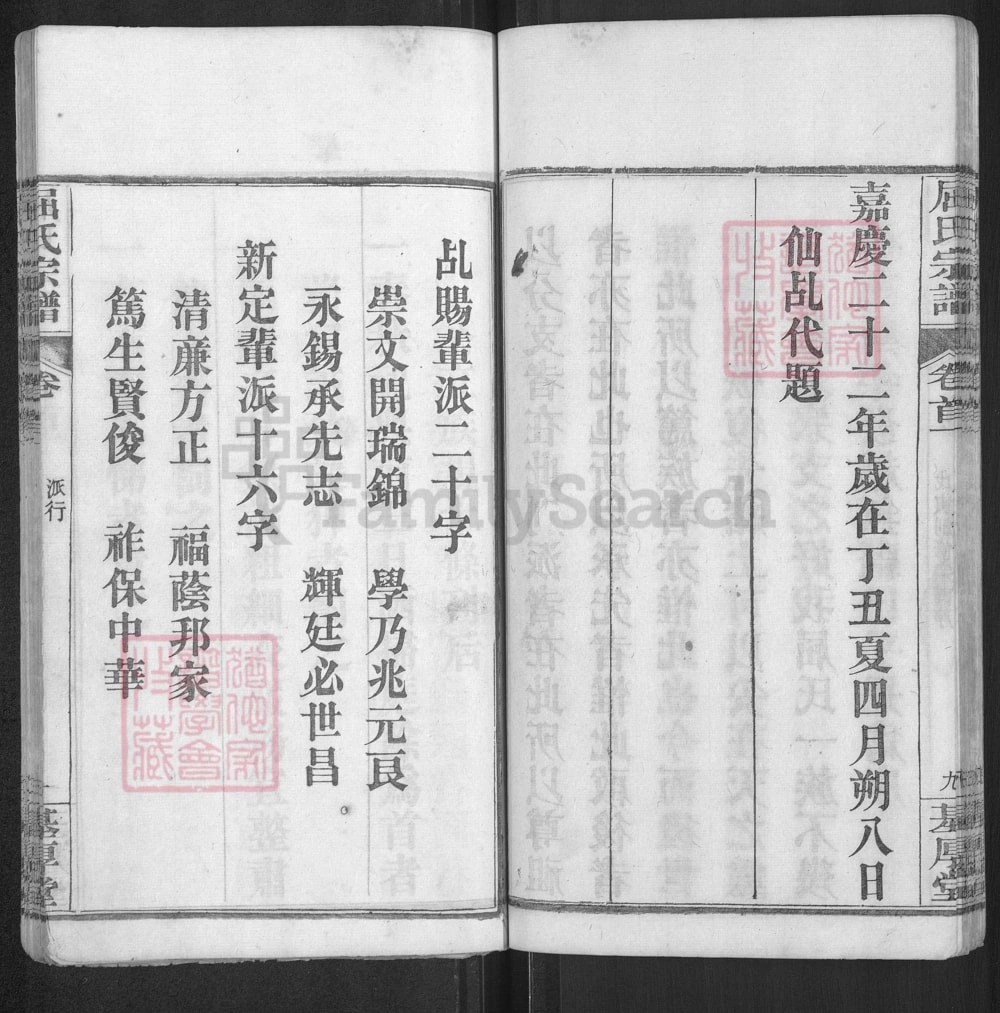 屈氏宗譜
卷首
九
基厚堂
嘉慶二十二年歲在丁丑夏四月朔八日
仙乩代題
乩賜輩派二十字
崇文開瑞錦 學乃兆元良
永錫承先志 輝廷必世昌
新定輩派十六字
清廉方正 福蔭邦家
篤生賢俊 祚保中華
屈氏宗譜
卷
派行
一
基厚堂
FamilySearch